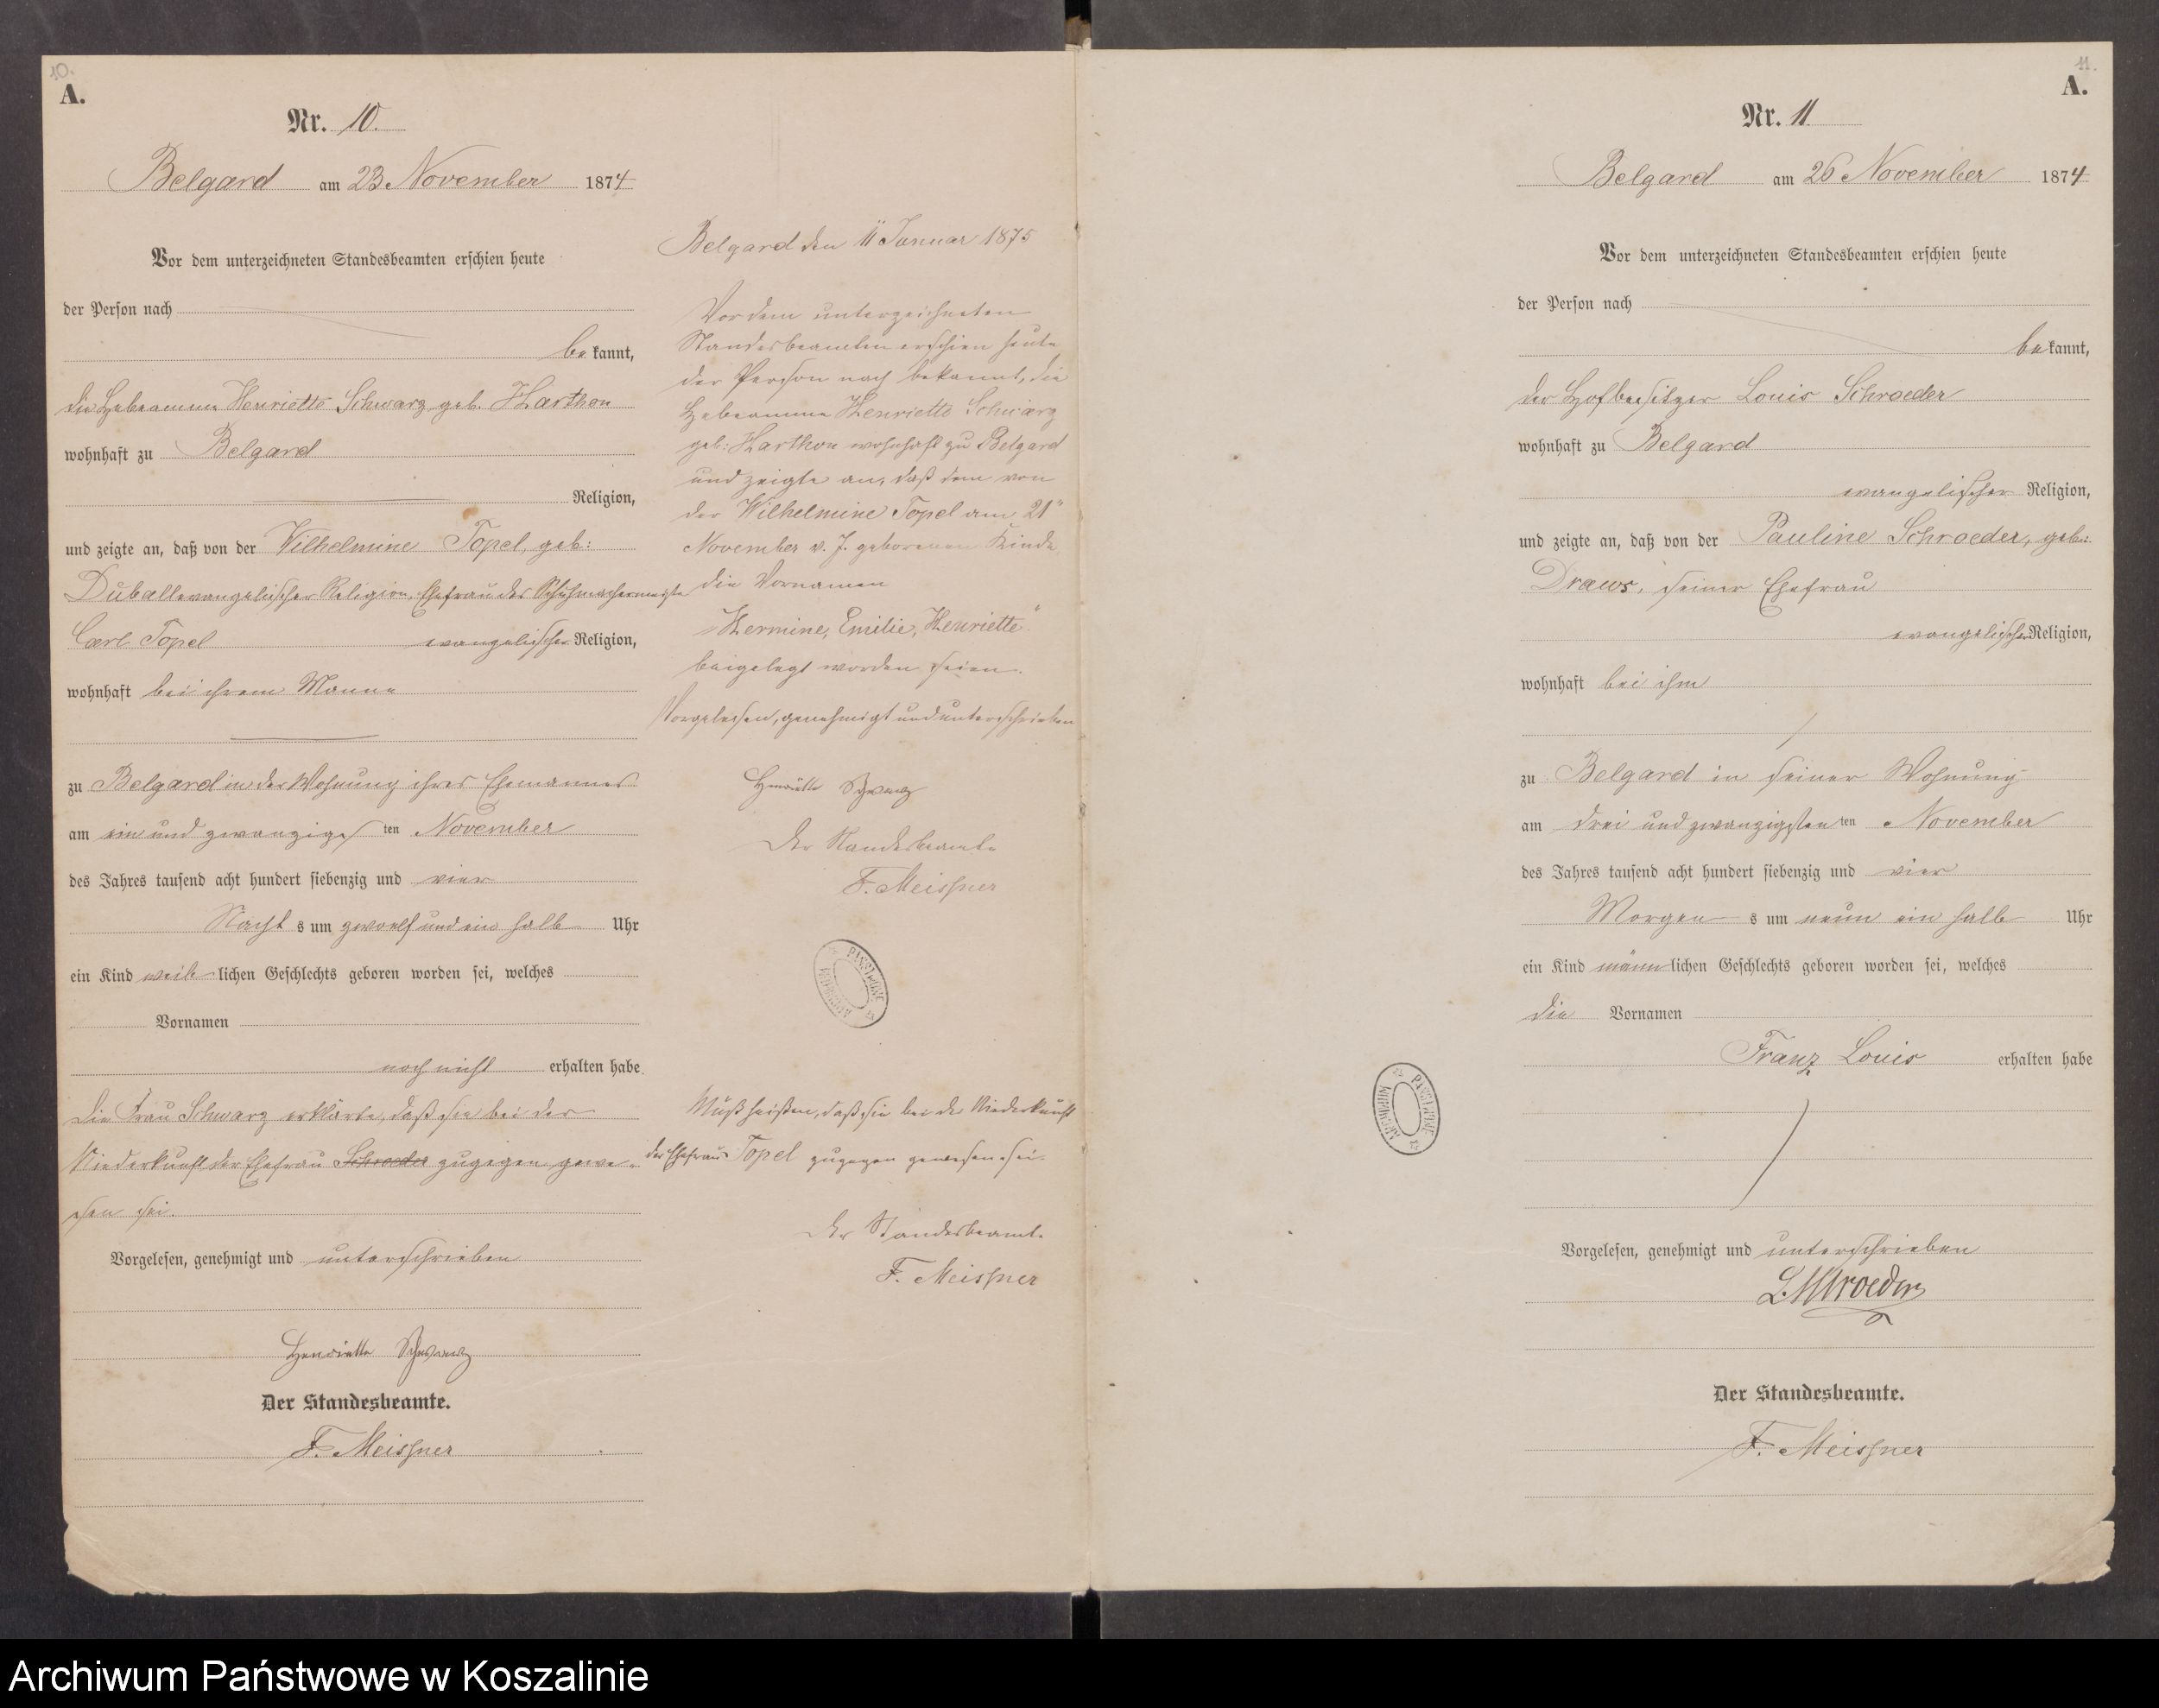 10.
A.
Nr. 10.
Belgard am 23 November 1874
Vor dem unterzeichneten Standesbeamten erschien heute
der Person nach
bekannt,
die Hebeamme Henriette Schwarz geb. Harthon
wohnhaft zu Belgard
Religion,
und zeigte an, daß von der Wilhelmine Topel, geb:
Duball evangelischer Religion, Ehefrau des Schuhmachermeisters
Carl Topel evangelischer Religion,
wohnhaft bei ihrem Manne
zu Belgard in der Wohnung ihres Ehemannes
am ein und zwanzigsten November
des Jahres tausend acht hundert siebenzig und vier
Nachts um zwoelf und ein halb Uhr
ein Kind weiblichen Geschlechts geboren worden sei, welches
Vornamen
noch nicht erhalten habe
Die Frau Schwarz erklärte, daß sie bei der
Niederkunft der Ehefrau Schroeder zugegen gewe-
sen sei.
Vorgelesen, genehmigt und unterschrieben
Henriette Schwarz
Der Standesbeamte.
F. Meissner
Belgard den 11" Januar 1875
Vor dem unterzeichneten
Standesbeamten erschien heute
der Person nach bekannt, die
Hebeamme Henriette Schwarz
geb: Harthon wohnhaft zu Belgard
und zeigte an, daß dem von
der Wilhelmine Topel am 21"
November v. J. geborenen Kinde
die Vornamen
"Hermine, Emilie, Henriette"
beigelegt worden seien.
Vorgelesen, genehmigt und unterschrieben
Henriette Schwarz
Der Standesbeamte
F. Meissner
ARCHIWUM PAŃSTWOWE
Muß heißen, daß sie bei der Niederkunft
der Ehefrau Topel zugegen gewesen sei.
Der Standesbeamte
F. Meissner
11.
A.
Nr. 11
Belgard am 26 November 1874
Vor dem unterzeichneten Standesbeamten erschien heute
der Person nach
bekannt,
der Hofbesitzer Louis Schroeder
wohnhaft zu Belgard
evangelischer Religion,
und zeigte an, daß von der Pauline Schroeder, geb:
Draws, seiner Ehefrau
evangelischer Religion,
wohnhaft bei ihm
zu Belgard in seiner Wohnung
am drei und zwanzigsten ten November
des Jahres tausend acht hundert siebenzig und vier
Morgens um neun ein halb Uhr
ein Kind männlichen Geschlechts geboren worden sei, welches
die Vornamen
Franz Louis erhalten habe
Vorgelesen, genehmigt und unterschrieben
L. Schroeder
Der Standesbeamte.
F. Meissner
ARCHIWUM PAŃSTWOWE
Archiwum Państwowe w Koszalinie